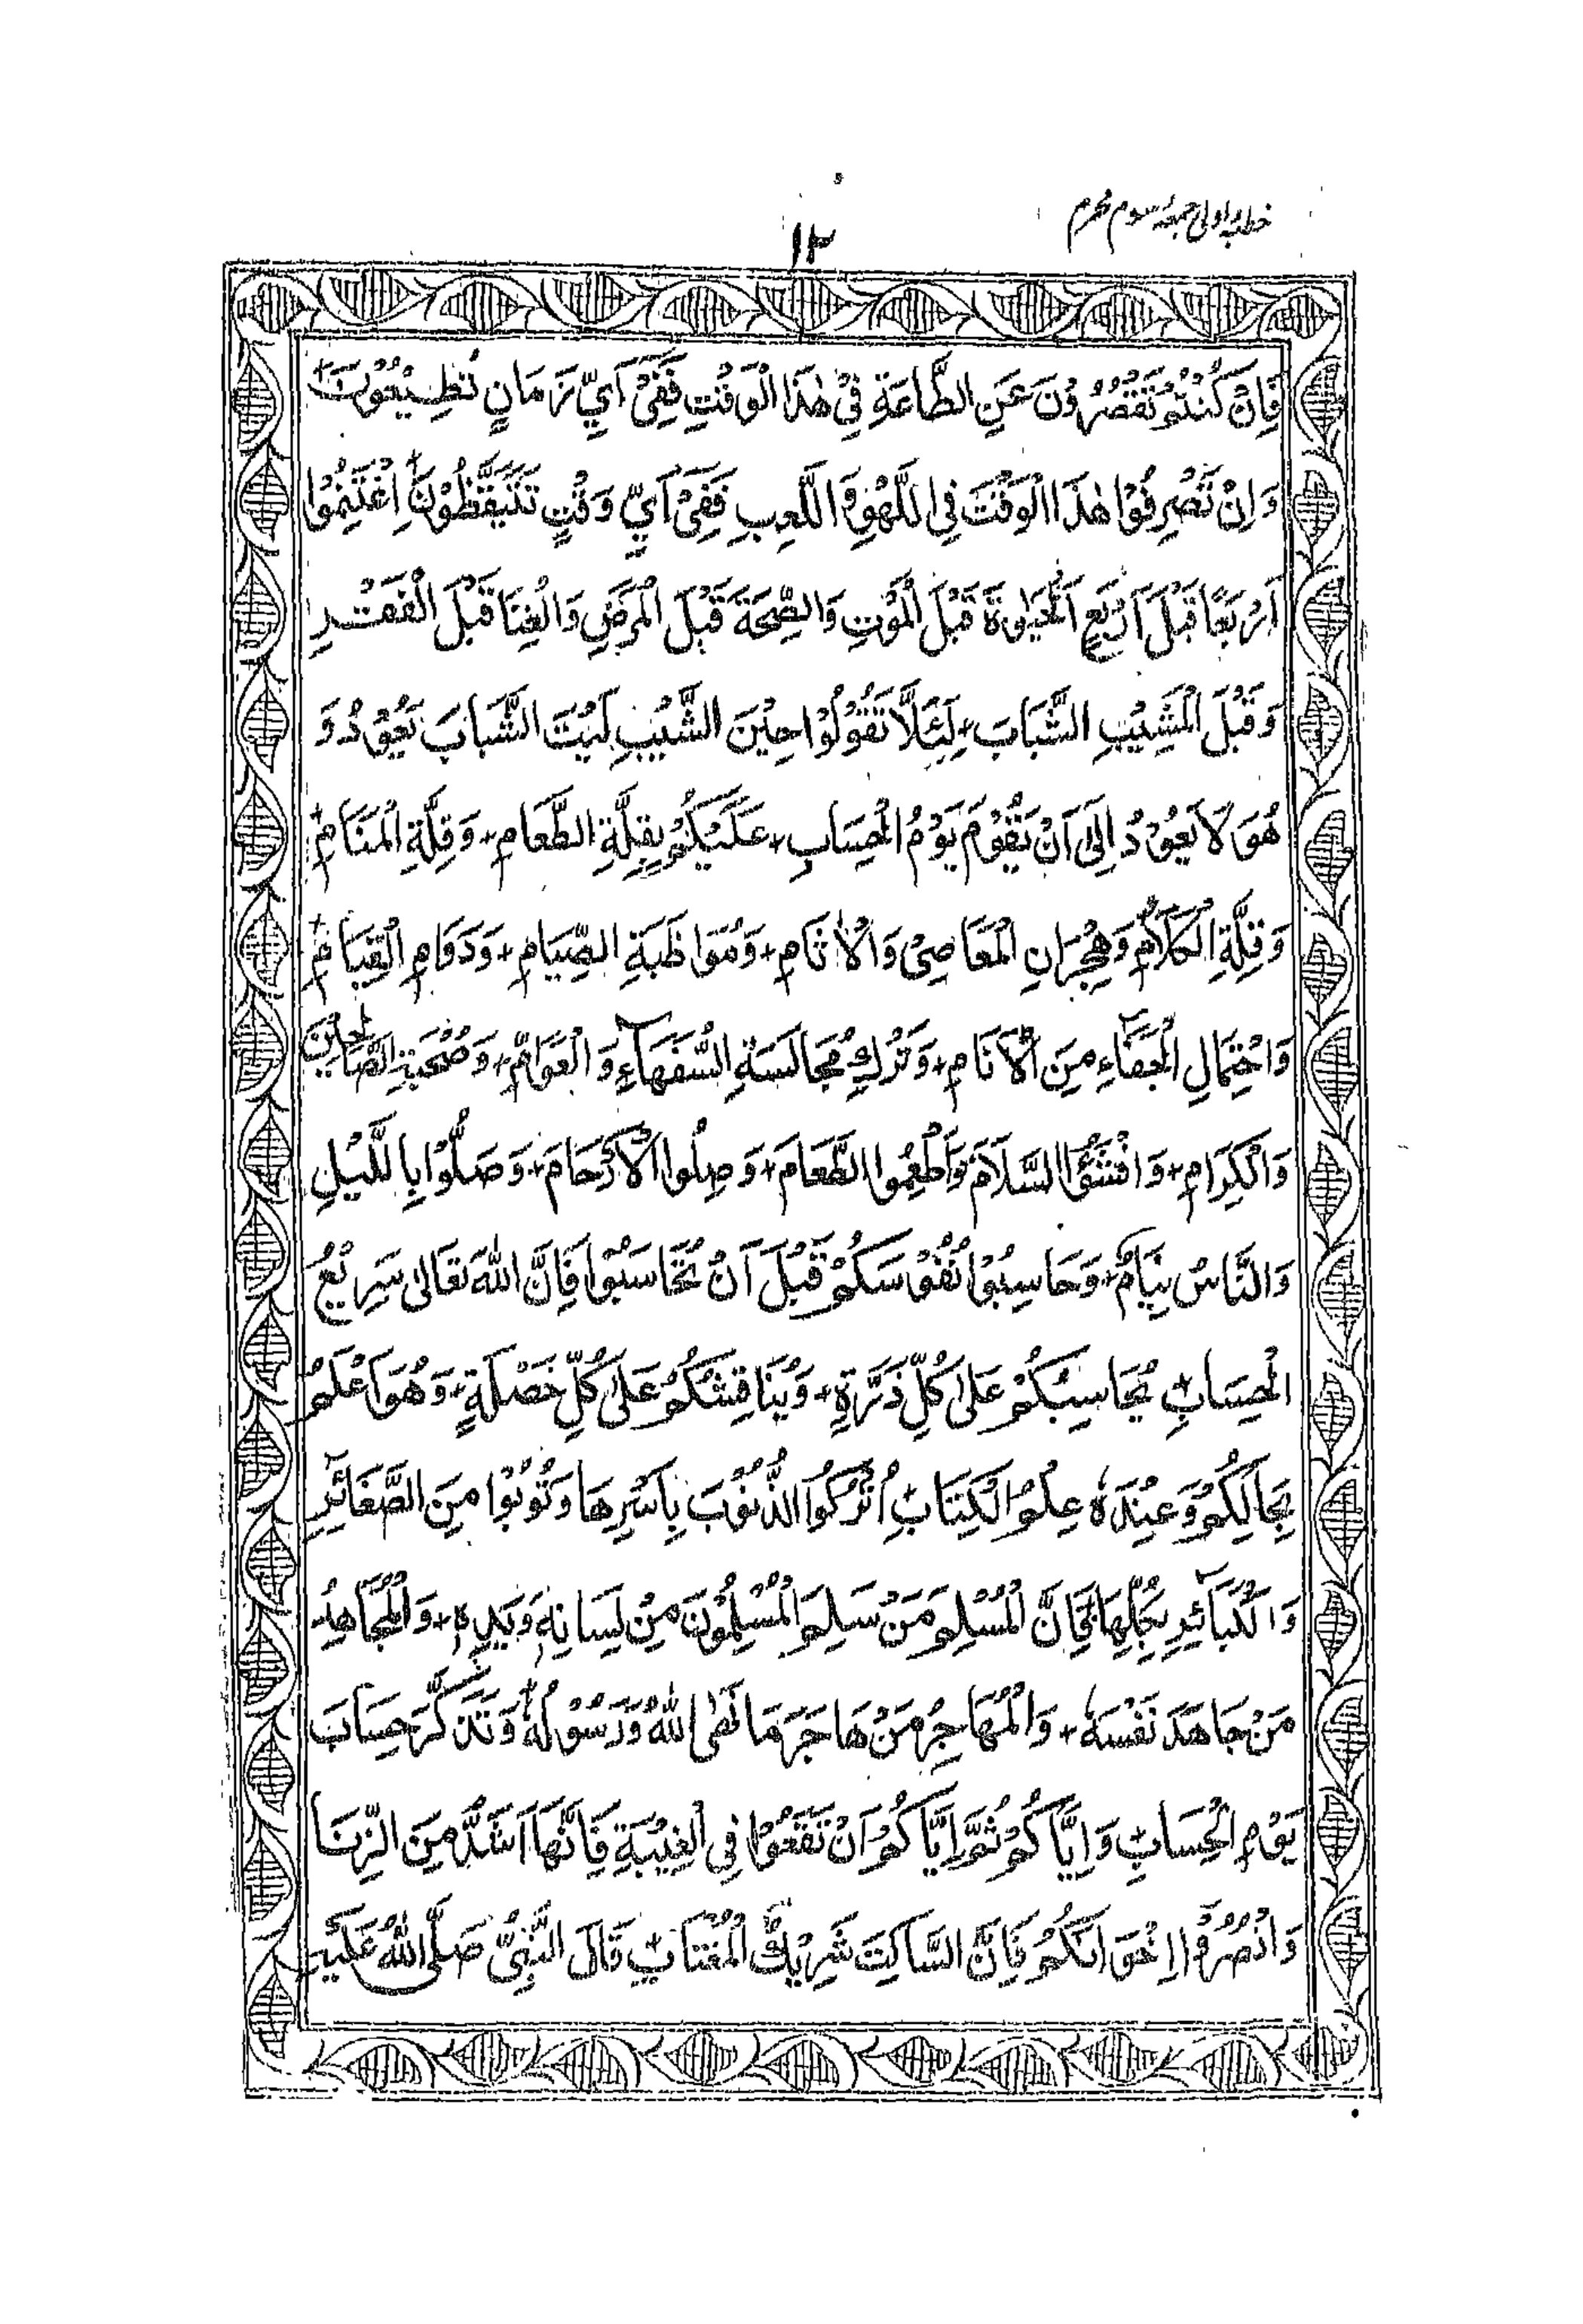 خطبہ اولی جمعہ سوم محرم
١٢
فَاِنْ كُنْتُمْ تُقَصِّرُوْنَ عَنِ الطَّاعَةِ فِيْ هٰذَا الْوَقْتِ فَفِيْ اَيِّ زَمَانٍ تُطِيْعُوْنَ+
وَاِنْ تَصْرِفُوْا هٰذَا الْوَقْتَ فِي اللَّهْوِ وَاللَّعِبِ فَفِيْ اَيِّ وَقْتٍ تَتَيَقَّظُوْنَ+ اِغْتَنِمُوْا
اَرْبَعًا قَبْلَ اَرْبَعٍ اَلْحَيٰوةَ قَبْلَ الْمَوْتِ وَالصِّحَّةَ قَبْلَ الْمَرَضِ وَالْغِنَا قَبْلَ الْفَقْرِ
وَقَبْلَ الْمَشِيْبِ الشَّبَابَ+ لِئَلَّا تَقُوْلُوْا حِيْنَ الشَّيْبِ لَيْتَ الشَّبَابَ يَعُوْدُ وَ
هُوَ لَا يَعُوْدُ اِلٰى اَنْ يَّقُوْمَ يَوْمُ الْحِسَابِ+ عَلَيْكُمْ بِقِلَّةِ الطَّعَامِ+ وَقِلَّةِ الْمَنَامِ+
وَقِلَّةِ الْكَلَامِ وَهِجْرَانِ الْمَعَاصِيْ وَالْاٰثَامِ+ وَمُوَاظَبَةِ الصِّيَامِ+ وَدَوَامِ الْقِيَامِ+
وَاحْتِمَالِ الْجَفَآءِ مِنَ الْاَنَامِ+ وَتَرْكِ مُجَالَسَةِ السُّفَهَآءِ وَالْعَوَامِّ+ وَصُحْبَةِ الصَّالِحِيْنَ
وَالْكِرَامِ+ وَافْشُوا السَّلَامَ وَاَطْعِمُوا الطَّعَامَ+ وَصِلُوا الْاَرْحَامَ+ وَصَلُّوْا بِاللَّيْلِ
وَالنَّاسُ نِيَامٌ+ وَحَاسِبُوْا نُفُوْسَكُمْ قَبْلَ اَنْ تُحَاسَبُوْا فَاِنَّ اللّٰهَ تَعَالٰى سَرِيْعُ
الْحِسَابِ+ يُحَاسِبُكُمْ عَلٰى كُلِّ ذَرَّةٍ+ وَيُنَاقِشُكُمْ عَلٰى كُلِّ خَصْلَةٍ+ وَهُوَ اَعْلَمُ
بِحَالِكُمْ وَعِنْدَهٗ عِلْمُ الْكِتَابِ+ اُتْرُكُوا الذُّنُوْبَ بِاَسْرِهَا وَتُوْبُوْا مِنَ الصَّغَائِرِ
وَالْكَبَآئِرِ بِجُلِّهَا فَاِنَّ الْمُسْلِمَ مَنْ سَلِمَ الْمُسْلِمُوْنَ مِنْ لِسَانِهٖ وَيَدِهٖ+ وَالْمُجَاهِدُ
مَنْ جَاهَدَ نَفْسَهٗ+ وَالْمُهَاجِرُ مَنْ هَاجَرَ مَا نَهَى اللّٰهُ وَرَسُوْلُهٗ+ وَتَذَكَّرَ حِسَابَ
يَوْمِ الْحِسَابِ+ وَاِيَّاكُمْ ثُمَّ اِيَّاكُمْ اَنْ تَقَعُوْا فِي الْغِيْبَةِ فَاِنَّهَا اَشَدُّ مِنَ الزِّنَا
وَانْصُرُوْا اِخْوَانَكُمْ فَاِنَّ السَّاكِتَ شَرِيْكُ الْمُغْتَابِ+ قَالَ النَّبِيُّ صَلَّى اللّٰهُ عَلَيْهِ